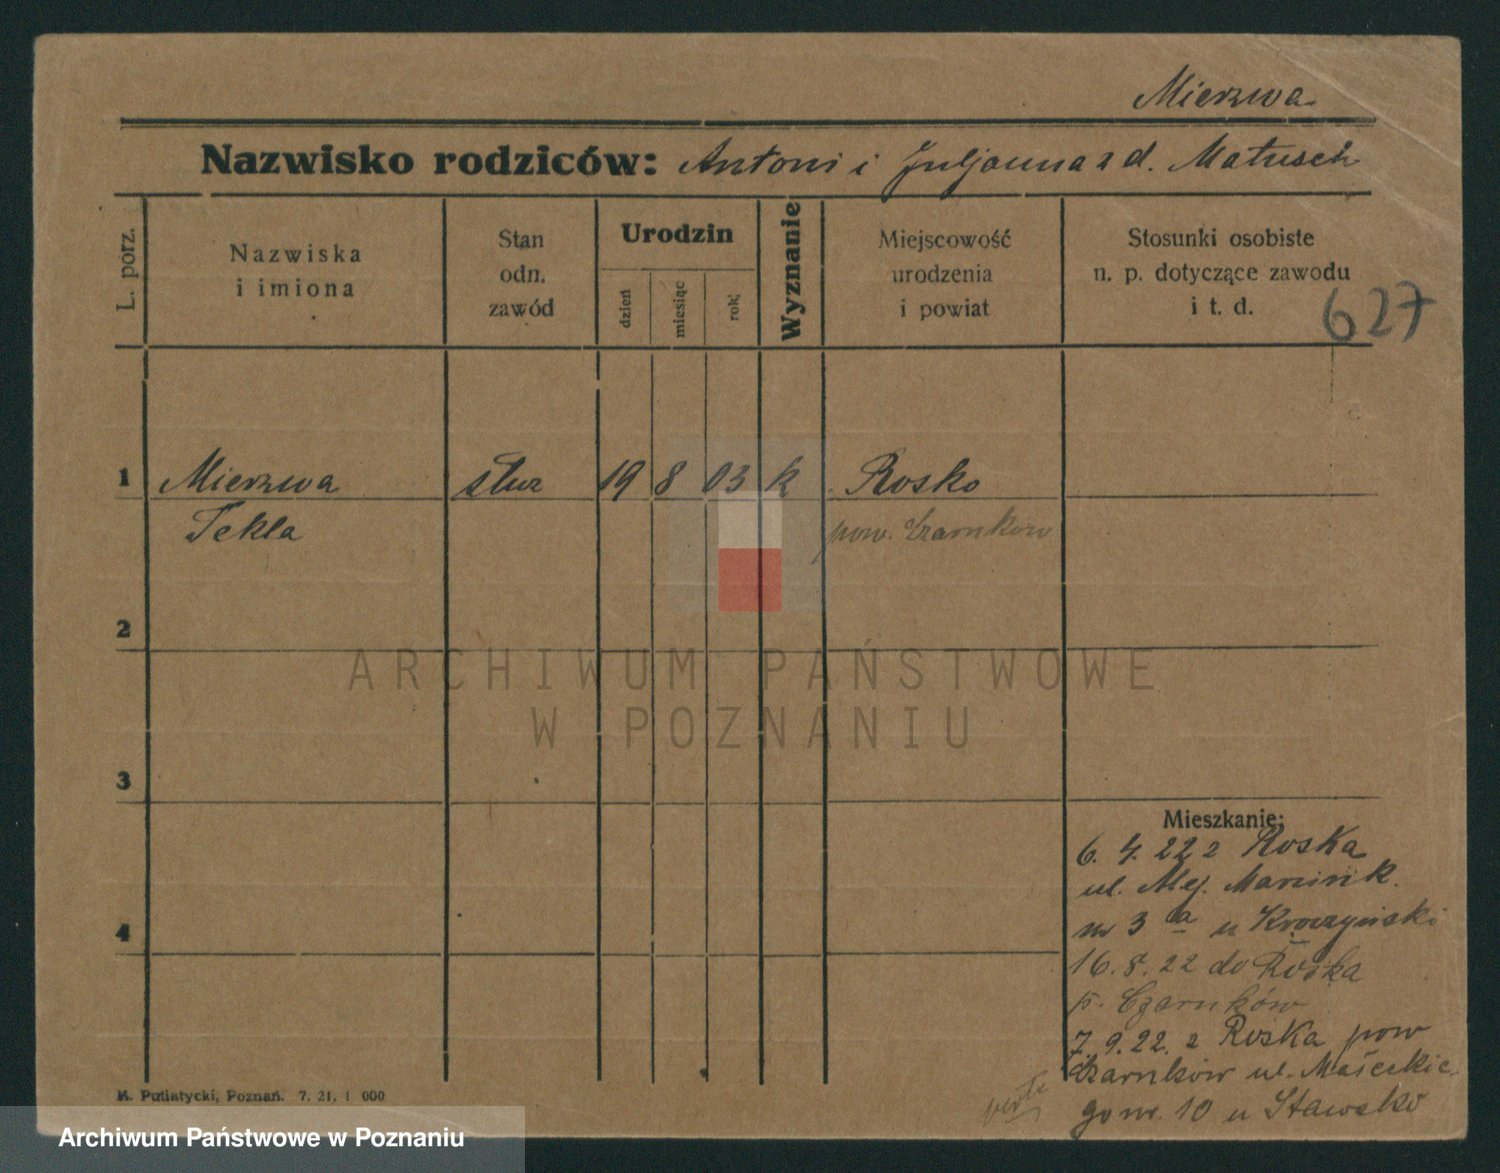 Mierzwa
Nazwisko rodziców: Antoni i Juljanna z d. Matusch
L. porz.
Nazwiska
i imiona
Stan
odn.
zawód
Urodzin
dzień
miesiąc
rok
Wyznanie
Miejscowość
urodzenia
i powiat
Stosunki osobiste
n. p. dotyczące zawodu
i t. d.
627
1 Mierzwa służ 19 8 03 k Rosko
Tekla pow. Czarnków
2
3
4
Mieszkanie:
6. 4. 22 z Roska
ul. Alej. Marcink.
nr 3 a u
16. 8. 22 do Roska
p. Czarnków
7. 9. 22. z Roska pow
Czarnków ul. Małeckie
go nr. 10 u
M. Putiatycki, Poznań. 7. 21. 1 000
ARCHIWUM PAŃSTWOWE
W POZNANIU
Archiwum Państwowe w Poznaniu